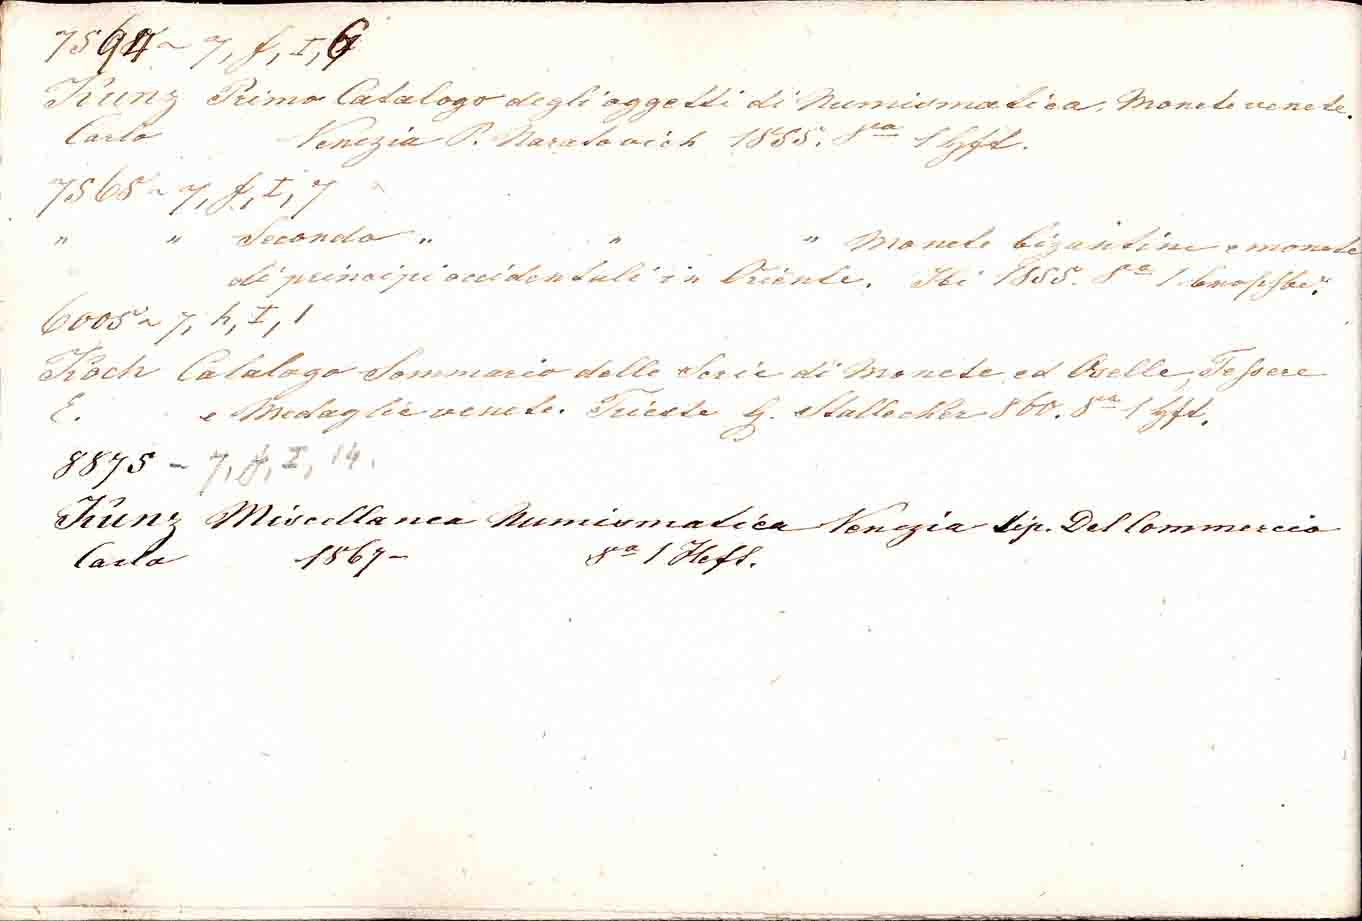 7564 ~ 7, f, I, 6
Kunz Primo Catalogo degli oggetti di Numismatica. Monete venete.
Carlo Venezia P. Naratovich 1855. 8va 1 Hft.
7565 ~ 7, f, I, 7
" " Secondo " " " Monete bizantine e monete
di principi occidentali in Oriente. Ibi 1855. 8va 1
6005 ~ 7, h, I, 1
Koch Catalogo Sommario delle Serie di Monete ed Oselle, Tessere
E. e Medaglie venete. Trieste 860. 8va 1 Hft.
8875 ~ 7, f, I, 14.
Kunz Miscellanea Numismatica Venezia tip. Del Commercio
Carlo 1867 - 8a 1 Heft.